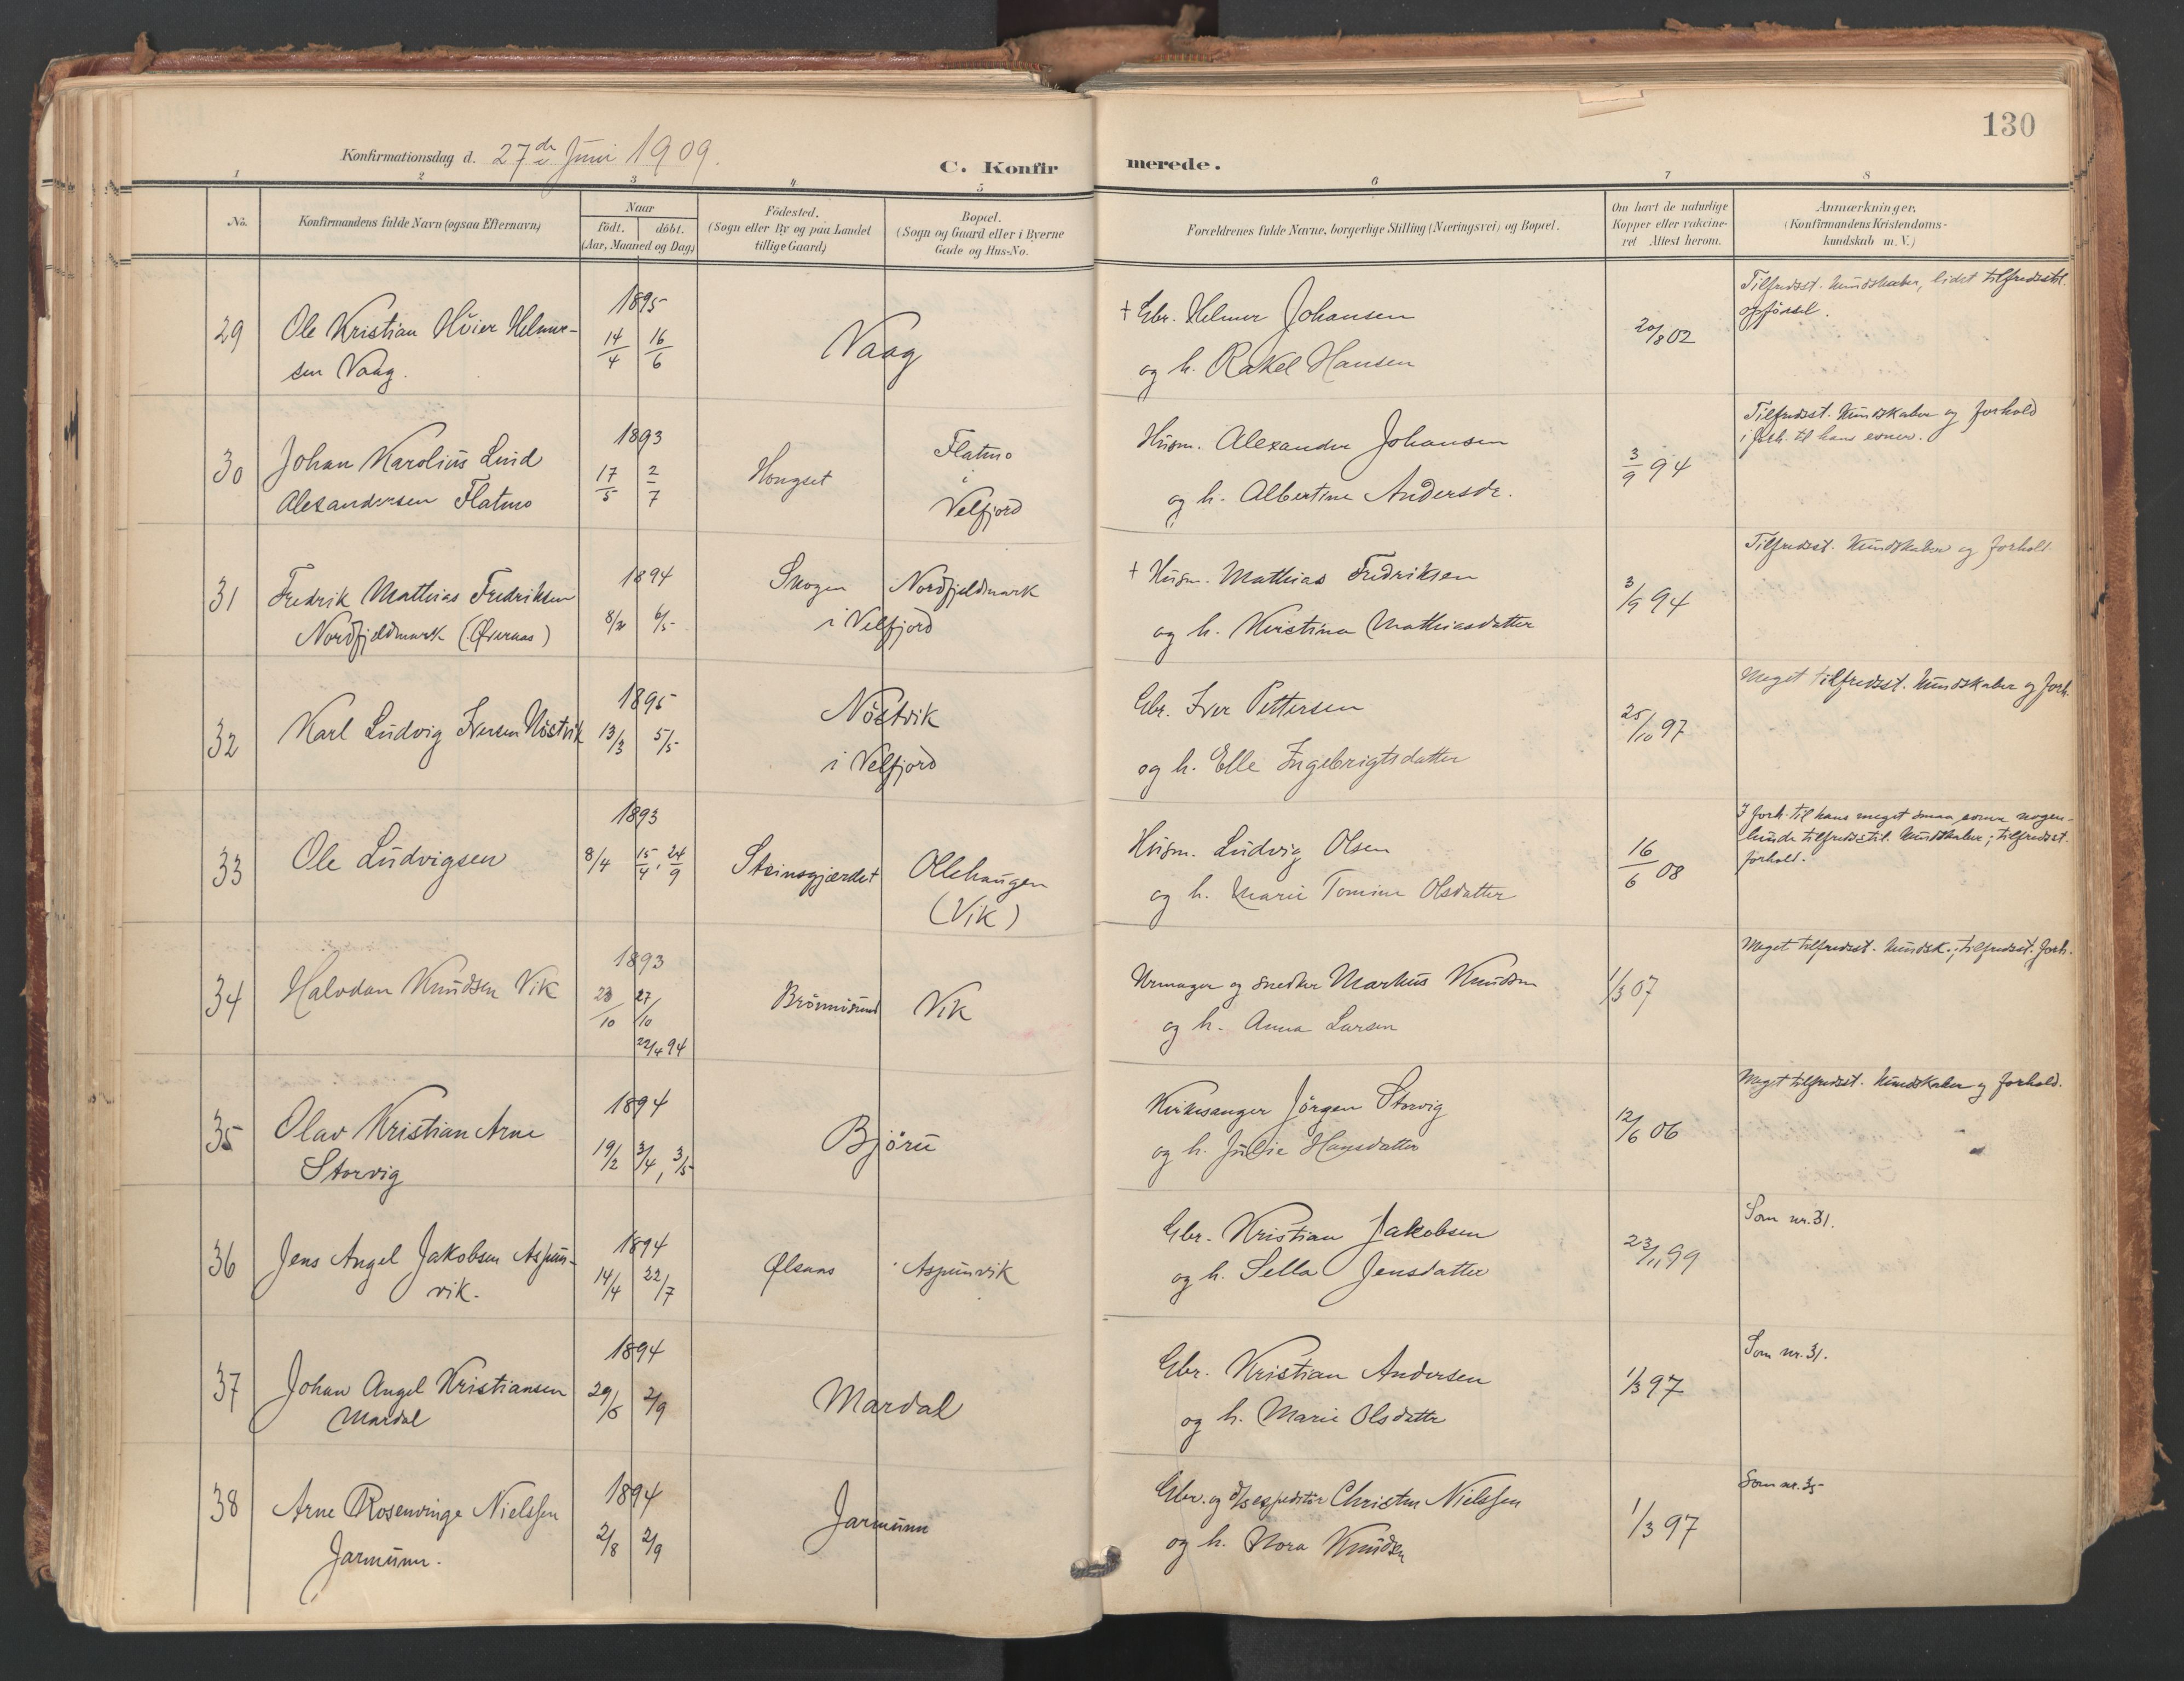 130
Konfirmationsdag d. 27de Juni 1909.
C. Konfirmerede.
1 2 3 4 5 6 7 8
No.
Konfirmandens fulde Navn (ogsaa Efternavn)
Naar
födt. döbt.
(Aar, Maaned og Dag)
Födested.
(Sogn eller By og paa Landet
tillige Gaard)
Bopæl.
(Sogn og Gaard eller i Byerne
Gade og Hus-No.
Forældrenes fulde Navne, borgerlige Stilling (Næringsvei) og Bopæl.
Om havt de naturlige
Kopper eller vakcine-
ret Attest herom.
Anmærkninger,
(Konfirmandens Kristendoms-
kundskab m. V.)
29 Ole Kristian Höier Helmer-
sen Vaag.
1895
14/4 16/6
Vaag
+ Gbr. Helmer Johansen
og h. Rakel Hansen
20/8 02
Tilfredsst. kundskaber, lidet tilfredsstil.
opförsel.
30 Johan Karolius Lund
Alexandersen Flatmo
1893
17/5 2/7
Hongset
Flatmo
i
Velfjord
Husm. Alexander Johansen
og h. Albertine Andersdr.
3/9 94
Tilfredsst. kundskaber og forhold
i forh. til hans evner.
31 Fredrik Mathias Fredriksen
Nordfjeldmark (Øvernes)
1894
6/5
Skogen Nordfjeldmark
i Velfjord
+ Husm. Mathias Fredriksen
og h. Kristina Mathiasdatter
3/9 94
Tilfredsst. kundskaber og forhold
32 Karl Ludvig Iversen Nöstvik
1895
13/3 5/5
Nöstvik
i Velfjord
Gbr. Iver Pettersen
og h. Elle Ingebrigtsdatter
25/10 97
Meget tilfredsst. kundskaber og forh.
33 Ole Ludvigsen
1893
8/4 15/4, 24/9
Steinsgjærdet
Ollehaugen
(Vik)
Husm. Ludvig Olsen
og h. Marie Tomine Olsdatter
16/6 08
I forh. til hans meget smaa evner nogen-
lunde tilfredsstil. kundskaber; tilfredsst.
forhold.
34 Halvdan Knudsen Vik
1893
23/10 27/10
22/4 94
Brönnösund Vik
Urmager og snedker Markus Knudsen
og h. Anna Larsen
1/3 07
Meget tilfredsst. kundsk.; tilfredsst. forh.
35 Olav Kristian Arne
Storvig
1894
19/2 3/4, 3/5
Björu
Kirkesanger Jörgen Storvig
og h. Julie Hansdatter
12/6 06
Meget tilfredsst. kundskaber og forhold.
36 Jens Angel Jakobsen Aspun-
vik.
1894
14/4 22/7
Ølsaas Aspunvik
Gbr. Kristian Jakobsen
og h. Sella Jensdatter
23/11 99
Som nr. 31.
37 Johan Angel Kristiansen
Mardal
1894
29/6 2/9
Mardal
Gbr. Kristian Andersen
og h. Marie Olsdatter
1/3 97
Som nr. 31.
38 Arne Rosenvinge Nielssen
Jarmunn.
1894
2/8 2/9
Jarmunn
Gbr. og d/s expeditör Christen Nielssen
og h. Nora Knudsen
1/3 97
Som nr. 35